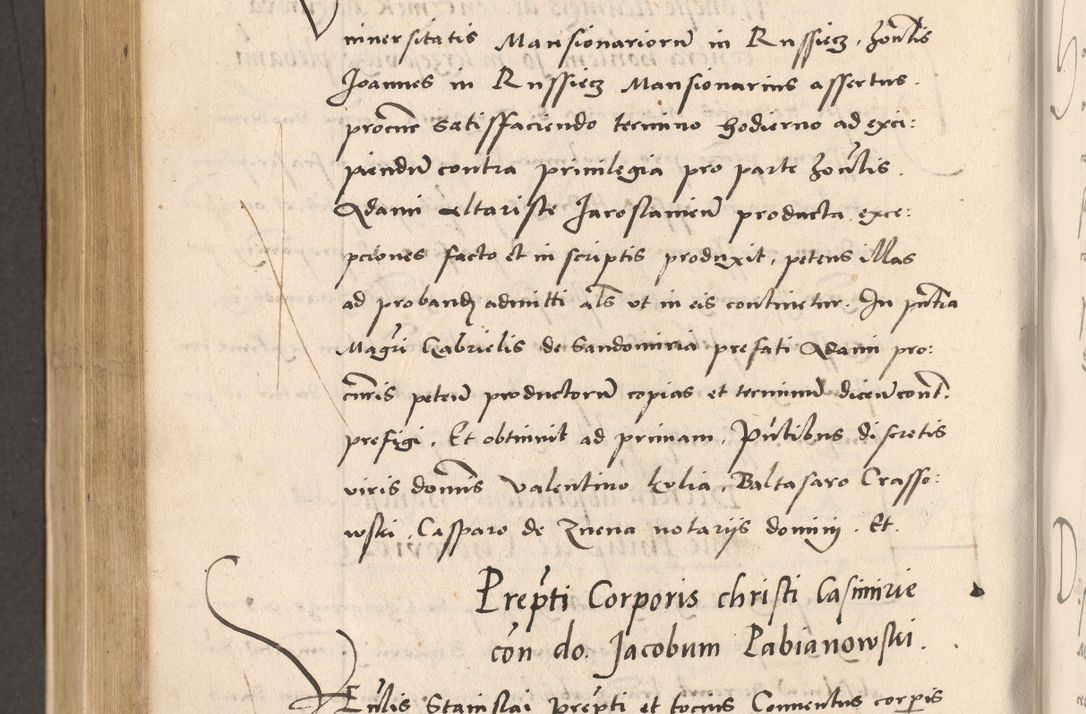 Vniuersitatis Mansionariorum in Russiecz, hono͞lis
Joannes in Russiecz Mansionarius assertus.
procur͞ satisfaciendo termino hodierno ad exci:
piendu͞ contra priuilegia pro parte hono͞lis.
Adami Altariste Jaroslauien͞ producta, exce:
pciones facto et in scriptis produxit, petens illas
ad proband͞ admitti al͞s ut in eis continetur. In pn͞tia
Mag͞ri Gabrielis de Sandomiria prefati Adami pro:
cu͞ris peten͞ productoru͞ copias et terminu͞ dicen͞ cont͞.
prefigi. Et obtinuit ad primam. Pn͞tibus discretis
viris domi͞s Valentino Kulia, Baltasaro Crasso:
wski, Casparo de Znena notarijs domini. Et.
Prep͞ti Corporis christi Casimirie
co͞n do. Jacobum Pabianowski.
Ven͞lis Stanislai prep͞ti et tocius Conuentus corp͞is